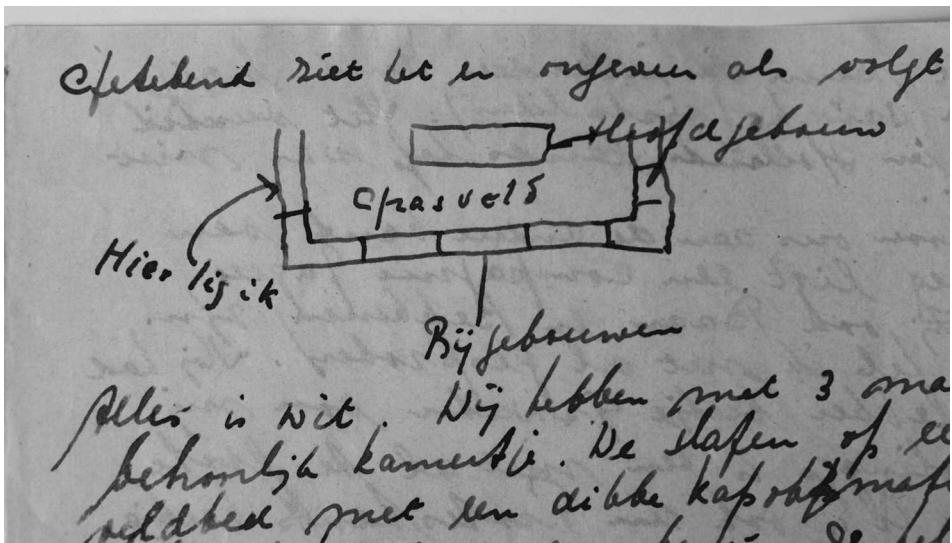 Getekend ziet het er ongeveer als volgt
Hoofdgebouw
Grasveld
Hier lig ik
Bijgebouwen
Alles is wit. Wij hebben met 3 ma
behoorlijk kamertje. We slapen op ee
veldbed met een dikke kapok